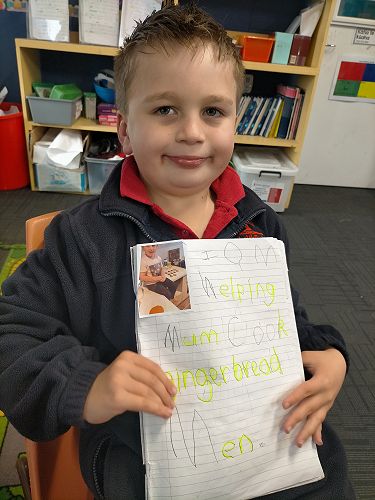 I a m
Helping
Mum Cook
gingerbread
Men.